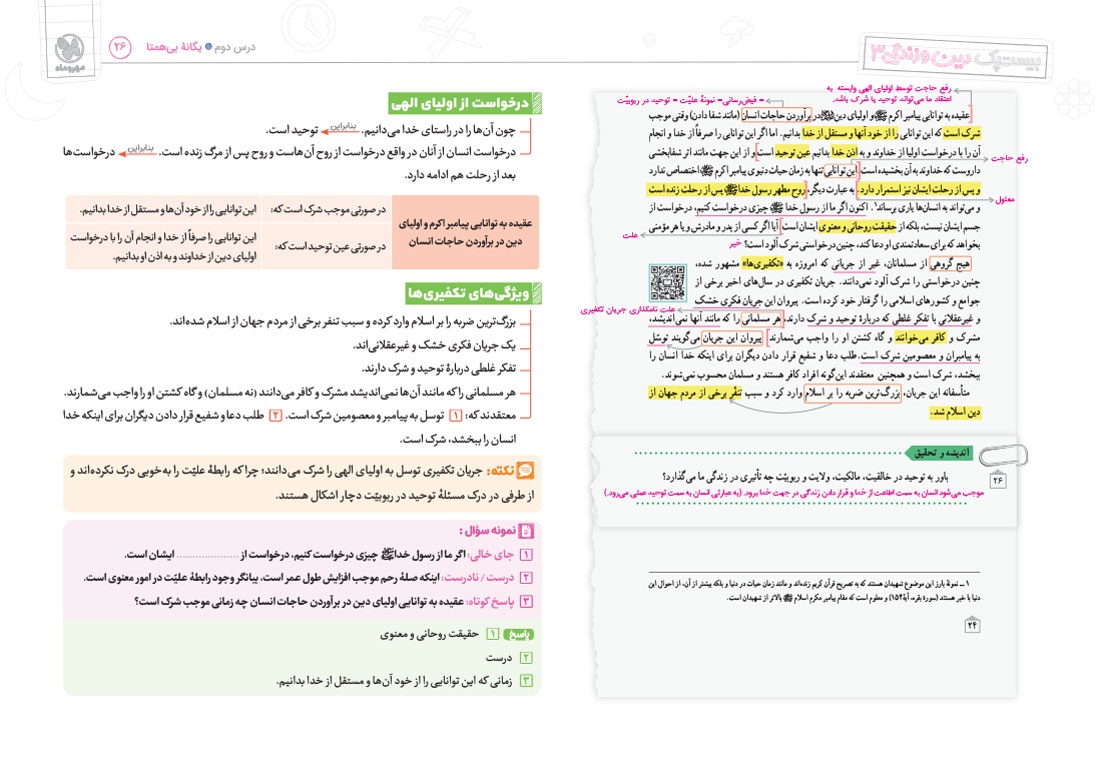 بیست‌پک دین و زندگی ۳
درس دوم • یگانهٔ بی‌همتا ۲۶
مهروماه
رفع حاجت توسط اولیای الهی وابسته به
اعتقاد ما می‌تواند توحید یا شرک باشد.
= فیض‌رسانی= نمونهٔ علیّت = توحید در ربوبیّت
عقیده به توانایی پیامبر اکرم ﷺ و اولیای دین در برآوردن حاجات انسان (مانند شفا دادن) وقتی موجب
شرک است که این توانایی را از خود آنها و مستقل از خدا بدانیم. اما اگر این توانایی را صرفاً از خدا و انجام
آن را با درخواست اولیا از خداوند و به اذن خدا بدانیم عین توحید است و از این جهت مانند اثر شفابخشی
داروست که خداوند به آن بخشیده است. این توانایی تنها به زمان حیات دنیوی پیامبر اکرم ﷺ اختصاص ندارد
رفع حاجت
و پس از رحلت ایشان نیز استمرار دارد. به عبارت دیگر، روح مطهر رسول خدا ﷺ پس از رحلت زنده است
معلول
و می‌تواند به انسان‌ها یاری برساند¹. اکنون اگر ما از رسول خدا ﷺ چیزی درخواست کنیم، درخواست از
جسم ایشان نیست، بلکه از حقیقت روحانی و معنوی ایشان است. آیا اگر کسی از پدر و مادرش و یا هر مؤمنی
علت
بخواهد که برای سعادتمندی او دعا کند، چنین درخواستی شرک آلود است؟ خیر
هیچ گروهی از مسلمانان، غیر از جریانی که امروزه به «تکفیری‌ها» مشهور شده،
چنین درخواستی را شرک آلود نمی‌دانند. جریان تکفیری در سال‌های اخیر برخی از
جوامع و کشورهای اسلامی را گرفتار خود کرده است. پیروان این جریان فکری خشک
علت نامگذاری جریان تکفیری
و غیرعقلانی با تفکر غلطی که دربارهٔ توحید و شرک دارند، هر مسلمانی را که مانند آنها نمی‌اندیشد،
مشرک و کافر می‌خوانند و گاه کشتن او را واجب می‌شمارند. پیروان این جریان می‌گویند توسّل
به پیامبران و معصومین شرک است. طلب دعا و شفیع قرار دادن دیگران برای اینکه خدا انسان را
ببخشد، شرک است و همچنین معتقدند این‌گونه افراد کافر هستند و مسلمان محسوب نمی‌شوند.
متأسفانه این جریان، بزرگ‌ترین ضربه را بر اسلام وارد کرد و سبب تنفّر برخی از مردم جهان از
دین اسلام شد.
اندیشه و تحقیق
باور به توحید در خالقیت، مالکیت، ولایت و ربوبیّت چه تأثیری در زندگی ما می‌گذارد؟
۲۶
موجب می‌شود انسان به سمت اطاعت از خدا و قرار دادن زندگی در جهت خدا برود. (به عبارتی انسان به سمت توحید عملی می‌رود.)
۱ــ نمونهٔ بارز این موضوع شهیدان هستند که به تصریح قرآن کریم زنده‌اند و مانند زمان حیات در دنیا و بلکه بیشتر از آن، از احوال این
دنیا با خبر هستند (سورهٔ بقره، آیهٔ ۱۵۴) و معلوم است که مقام پیامبر مکرم اسلام ﷺ بالاتر از شهیدان است.
۲۴
درخواست از اولیای الهی
چون آن‌ها را در راستای خدا می‌دانیم. بنابراین توحید است.
درخواست انسان از آنان در واقع درخواست از روح آن‌هاست و روح پس از مرگ زنده است. بنابراین درخواست‌ها
بعد از رحلت هم ادامه دارد.
عقیده به توانایی پیامبر اکرم و اولیای
دین در برآوردن حاجات انسان
در صورتی موجب شرک است که: این توانایی را از خود آن‌ها و مستقل از خدا بدانیم.
در صورتی عین توحید است که: این توانایی را صرفاً از خدا و انجام آن را با درخواست
اولیای دین از خداوند و به اذن او بدانیم.
ویژگی‌های تکفیری‌ها
بزرگ‌ترین ضربه را بر اسلام وارد کرده و سبب تنفر برخی از مردم جهان از اسلام شده‌اند.
یک جریان فکری خشک و غیرعقلانی‌اند.
تفکر غلطی دربارهٔ توحید و شرک دارند.
هر مسلمانی را که مانند آن‌ها نمی‌اندیشد مشرک و کافر می‌دانند (نه مسلمان) و گاه کشتن او را واجب می‌شمارند.
معتقدند که: ۱ توسل به پیامبر و معصومین شرک است. ۲ طلب دعا و شفیع قرار دادن دیگران برای اینکه خدا
انسان را ببخشد، شرک است.
نکته: جریان تکفیری توسل به اولیای الهی را شرک می‌دانند؛ چرا که رابطهٔ علیّت را به‌خوبی درک نکرده‌اند و
از طرفی در درک مسئلهٔ توحید در ربوبیّت دچار اشکال هستند.
نمونه سؤال :
۱ جای خالی: اگر ما از رسول خدا ﷺ چیزی درخواست کنیم، درخواست از .................... ایشان است.
۲ درست / نادرست: اینکه صلهٔ رحم موجب افزایش طول عمر است، بیانگر وجود رابطهٔ علیّت در امور معنوی است.
۳ پاسخ کوتاه: عقیده به توانایی اولیای دین در برآوردن حاجات انسان چه زمانی موجب شرک است؟
پاسخ ۱ حقیقت روحانی و معنوی
۲ درست
۳ زمانی که این توانایی را از خود آن‌ها و مستقل از خدا بدانیم.